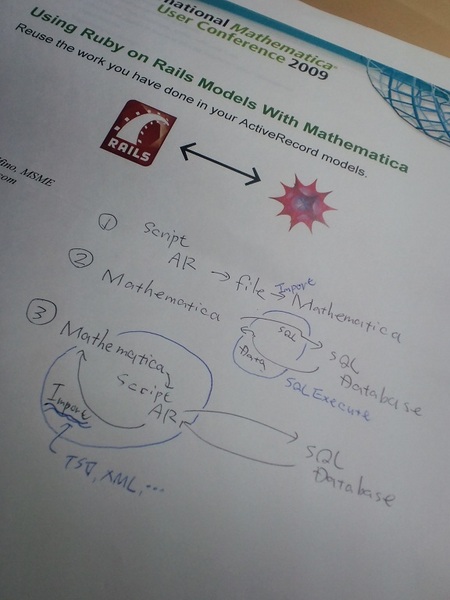 national Mathematica
User Conference 2009
Using Ruby on Rails Models With Mathematica
Reuse the work you have done in your ActiveRecord models.
RAILS
MSME
com
① Script
AR → file → Mathematica
Import
② Mathematica
SQL
Data
SQL
Database
SQLExecute
③ Mathematica
Script
AR
Import
SQL
Database
TSV, XML, ...